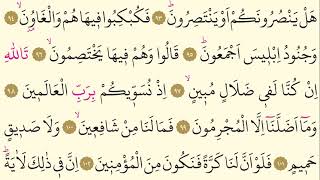 هَلْ يَنْصُرُونَكُمْ اَوْ يَنْتَصِرُونَۜ ﴿٩٣﴾ فَكُبْكِبُوا ف۪يهَا هُمْ وَالْغَاوُ۫نَۙ ﴿٩٤﴾
وَجُنُودُ اِبْل۪يسَ اَجْمَعُونَۜ ﴿٩٥﴾ قَالُوا وَهُمْ ف۪يهَا يَخْتَصِمُونَۙ ﴿٩٦﴾ تَاللّٰهِ
اِنْ كُنَّا لَف۪ي ضَلَالٍ مُب۪ينٍۙ ﴿٩٧﴾ اِذْ نُسَوّ۪يكُمْ بِرَبِّ الْعَالَم۪ينَ ﴿٩٨﴾
وَمَٓا اَضَلَّنَٓا اِلَّا الْمُجْرِمُونَ ﴿٩٩﴾ فَمَا لَنَا مِنْ شَافِع۪ينَۙ ﴿١٠٠﴾ وَلَا صَد۪يقٍ
حَم۪يمٍ ﴿١٠١﴾ فَلَوْ اَنَّ لَنَا كَرَّةً فَنَكُونَ مِنَ الْمُؤْمِن۪ينَ ﴿١٠٢﴾ اِنَّ ف۪ي ذٰلِكَ لَاٰيَةًۜ